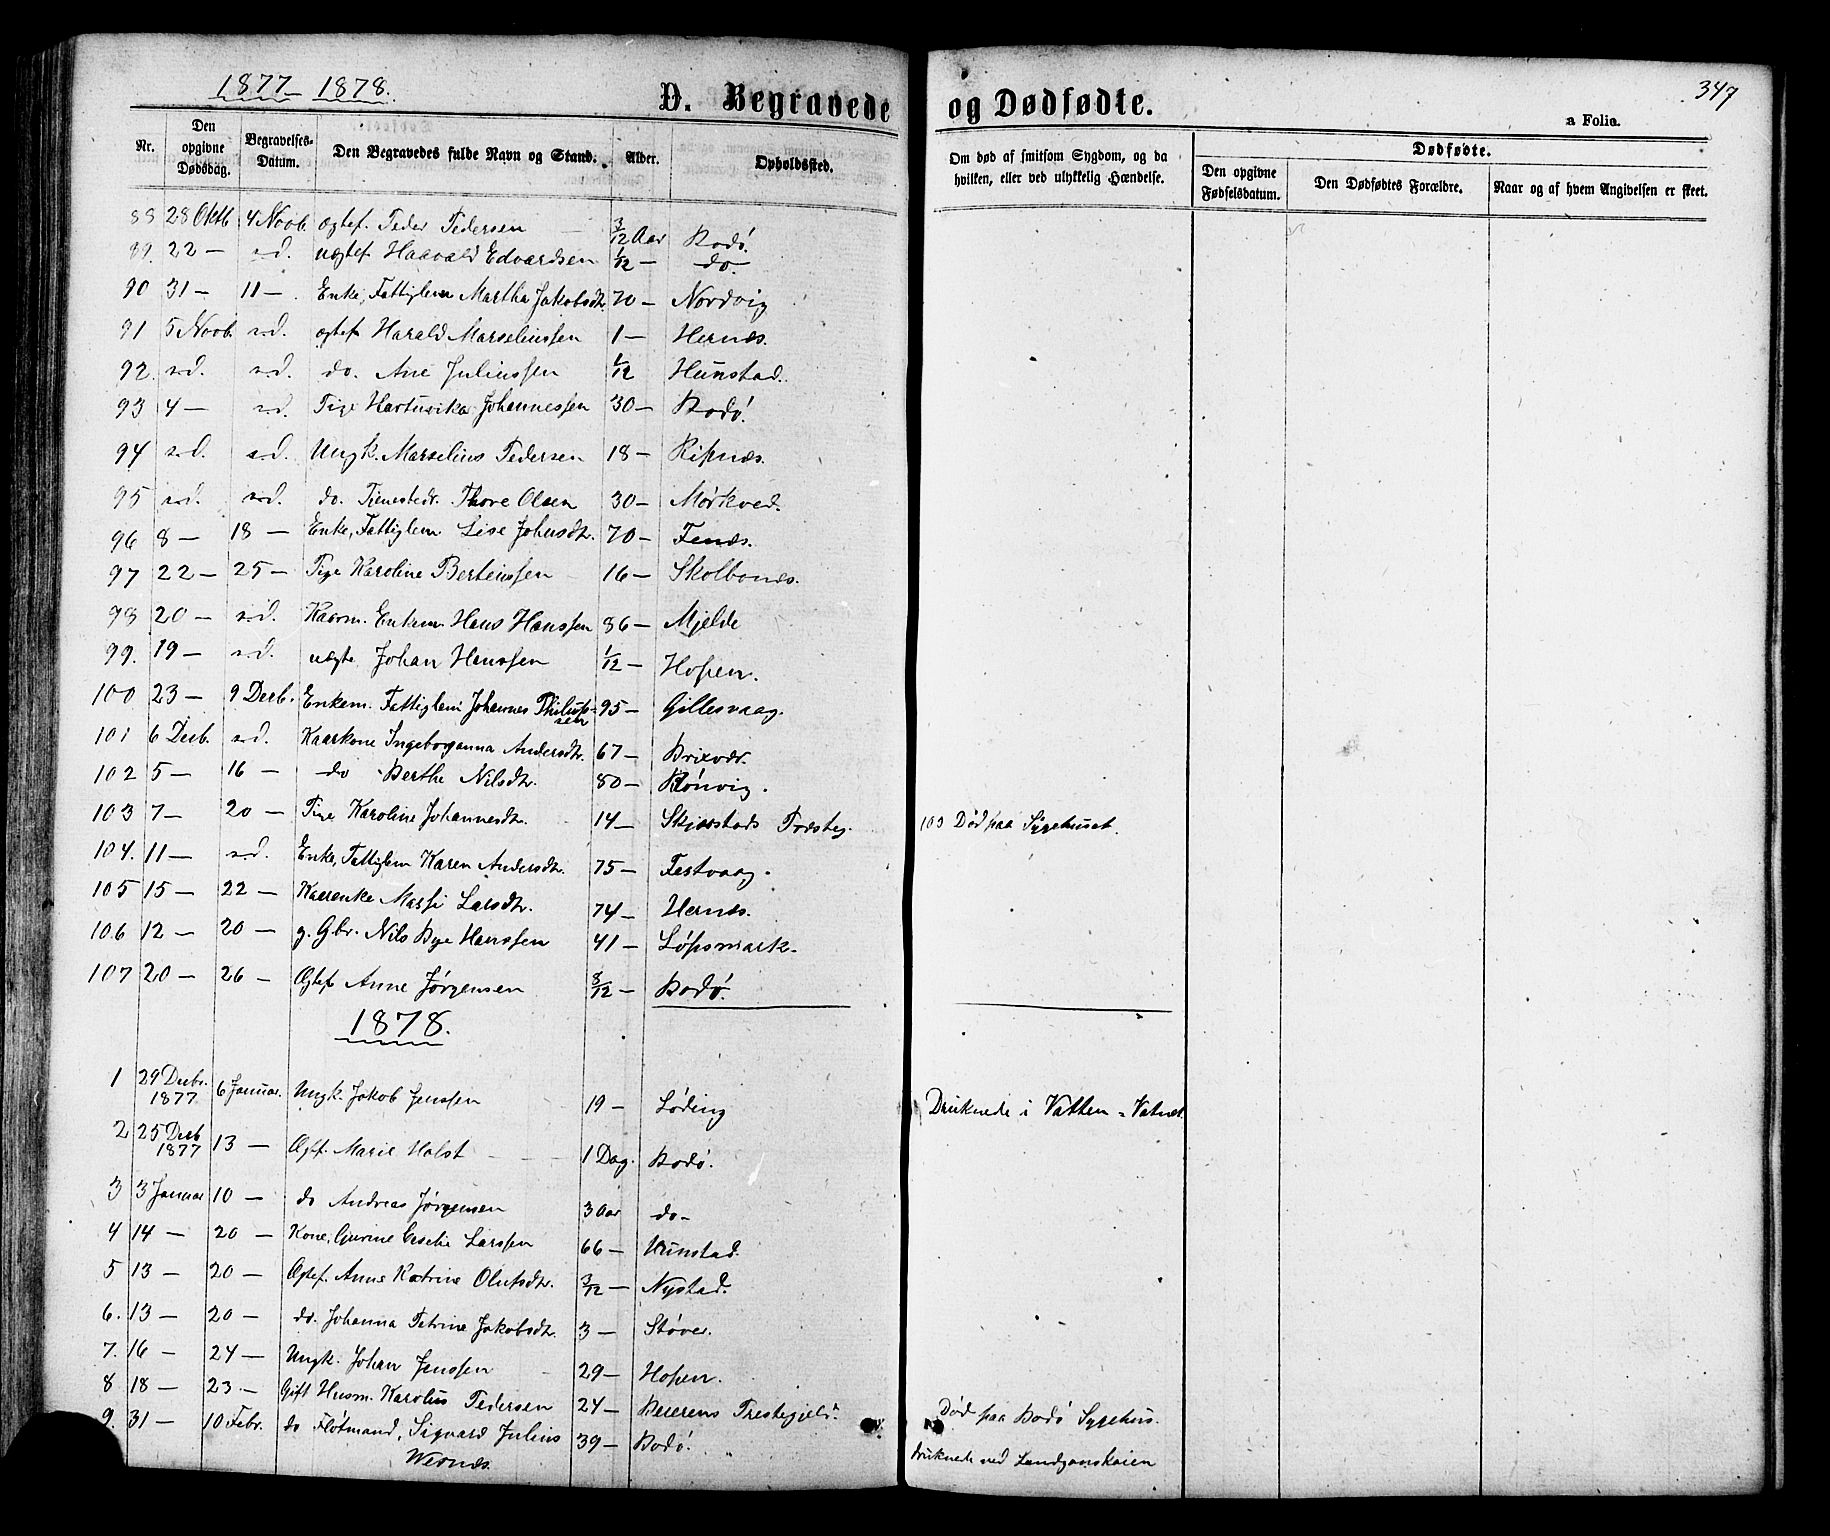 1877 – 1878.
D. Begravede og Dødfødte.
347
a Folio.
Nr.
Den opgivne Dødsdag.
Begravelses-Datum.
Den Begravedes fulde Navn og Stand.
Alder.
Opholdssted.
Om død af smitsom Sygdom, og da hvilken, eller ved ulykkelig Hændelse.
Dødfødte.
Den opgivne Fødselsdatum.
Den Dødfødtes Forældre.
Naar og af hvem Angivelsen er skeet.
88 28 Oktb 4 Novb. ogtef. Peder Pedersen 3/12 Aar Bodø.
89. 22 — s.d. uægtef Haavald Edvardsen 1/12 — do.
90 31 — 11 — Enke, Fattiglem Martha Jakobsdtr. 70 — Nordvig
91 5 Novb. s.d. ægtef Harald Marseliussen 1 — Hernæs.
92. s.d. s.d. do. Ane Juliussen 1/12 Hunstad.
93 4 — s.d. Pige Hartuvika Johannessen 30 — Bodø.
94 s.d. s.d. Ungk. Marselius Pedersen 18 — Ripnæs.
95 s.d. s.d. do. Tjenestedr. Thore Olsen 30 — Mørkved.
96 8 — 18 — Enke, Fattiglem Lise Johnsdtr. 70 — Fenæs.
97 22 — 25 — Pige Karoline Berteussen 16 — Skolbones.
98 20 — s.d. Kaarm. Enkem. Hans Hanssen 86 — Mjelde
99. 19 — s.d. uægte Johan Hanssen 1/12 — Hopen.
100 23 — 9 Decb. Enkem. Fattiglem Johannes Philipssen 95 — Gillesvaag.
101 6 Decb. s.d. Kaarkone Ingeborganna Andersdtr. 67 — Brixvær.
102 5 — 16 — do Berthe Nilsdtr. 80 — Rønvig.
103 7 — 20 — Pige Karoline Johannesdtr. 14 — Skjærstads Præsteg. 103 Død paa Sygehuset.
104. 11 — s.d. Enke, Fattiglem Karen Andersdtr. 75 — Festvaag.
105 15 — 22 — Kaarenke Marsi Larsdtr. 74 — Hernæs.
106 12 — 20 — g. Gbr. Nils Bye Hanssen 41 — Løpsmark.
107 20 — 26 — Ægtef Anne Jørgensen 8/12 — Bodø.
1878.
1 29 Decbr. 1877 6 Januar. Ungk. Jakob Jenssen 19 — Løding Druknede i Vatten = Vatnet
2 25 Decb 1877 13 — Ægtf. Marie Holst 1 Dag. Bodø.
3 3 Januar 10 — do Andreas Jørgensen 3 Aar do —
4 14 — 20 — Kone, Gurine Cecelie Larssen 66 — Hunstad.
5 13 — 20 — Ægtef. Anne Katrine Olufsdtr. 3/12 — Nystad.
6. 13 — 20 — do. Johanna Petrine Jakobsdtr. 3 — Støver.
7. 16 — 24 — Ungk. Johan Jenssen 29 — Hopen.
8 18 — 23. — Gift Husm. Karolius Pedersen 24 — Beierens Prestegjeld. Død paa Bodø Sygehus.
9. 31 — 10 Febr. do Fløtmand, Sigvard Julius Wernæs. 39 — Bodø. Druknede ved Landganskaien